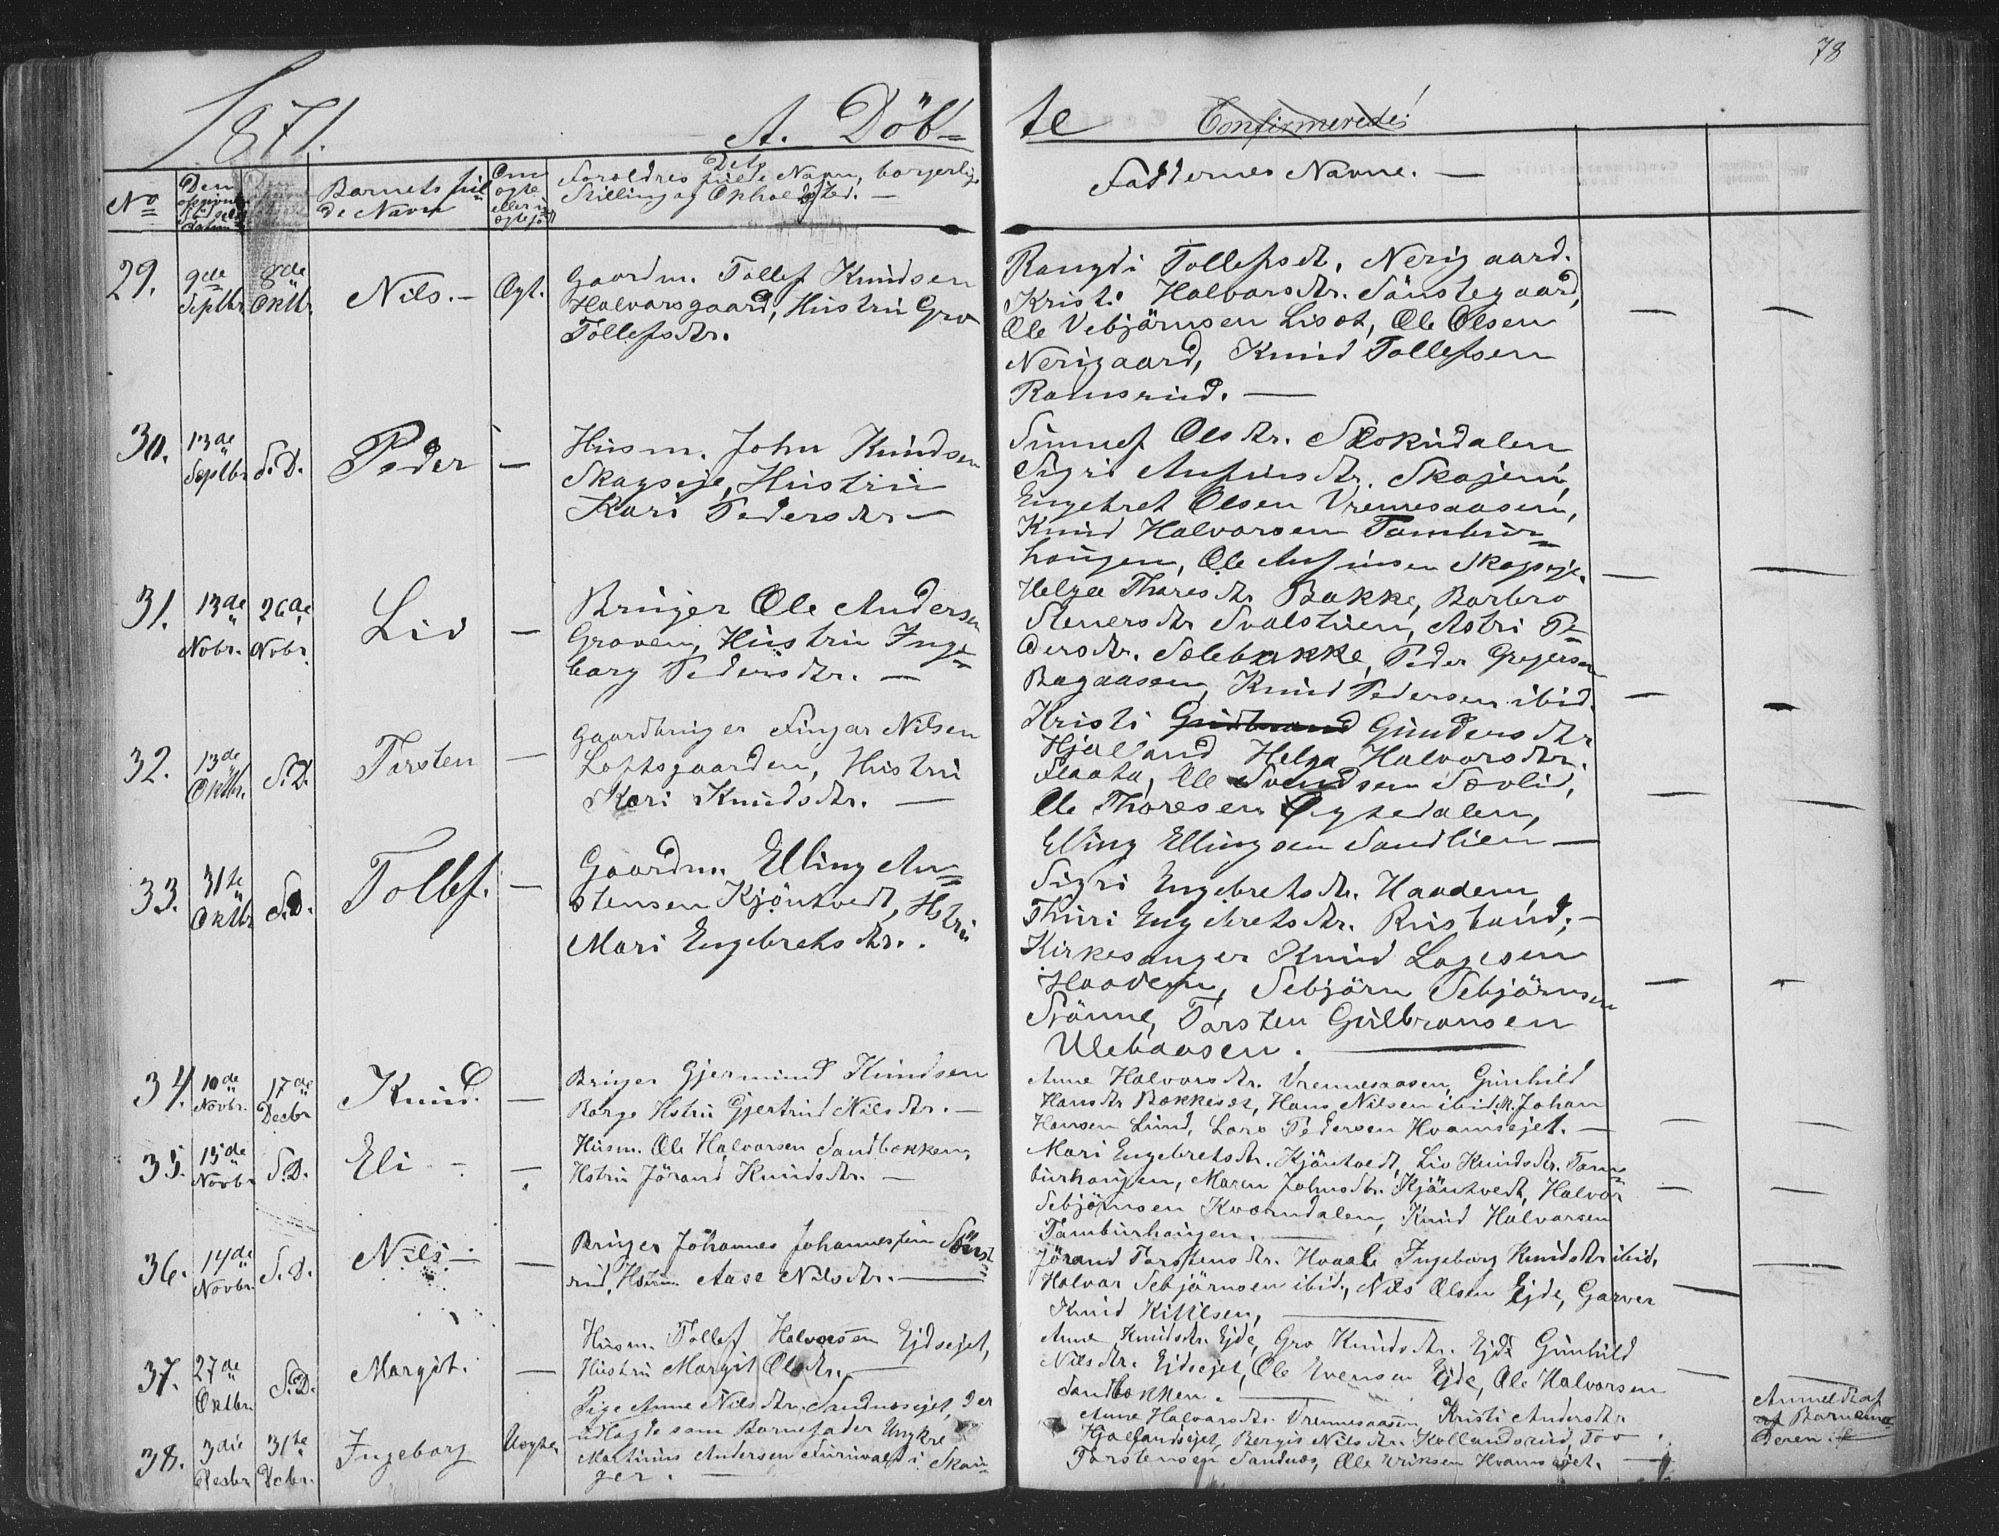 78
1871.
A. Döb=
te
Confirmerede
No
Barnets fulde Navn
Forældres fulde Navn, borgerlige
Stilling og Opholdssted. —
Faddernes Navne. —
29.
9de
Septbr
8de
Oktbr.
Nils. —
Ægt.
Gaardm. Tollef Knudsen
Halvorsgaard, Hustru Gro
Tollefsdtr.
Rangdi Tollefsdt, Nerigaard.
Kristi Halvorsdtr. Sönstegaard,
Ole Vebjörnsen Liset, Ole Olsen
Nerigaard, Knud Tollefsen
Ramsrud. —
30.
13de
Septbr
S.D.
Peder
—
Husm. John Knudsen
Skagseje, Hustru
Kari Pedersdtr —
Sunnef Olsdtr. Slokudalen
Sigri Anfinsdtr. Skajem,
Engebret Olsen Vrennesaasen,
Knud Halvorsen Tambur=
haugen, Ole Anfinsen Skagseje.
31.
13de
Nobr.
26de
Nobr.
Liv
—
Bruger Ole Andersen
Groven, Hustru Inge=
borg Pedersdtr. —
Helga Thoresdtr Bakke, Barbro
Stenersdtr Svalstuen, Astri Pe=
dersdtr. Solebakke, Peder Gregersen
Bagaasen, Knud Pedersen ibid.
32.
13de
Oktbr.
S.D.
Torsten
—
Gaardbruger Fingar Nilsen
Loftsgaarden, Hustru
Kari Knudsdtr. —
Kristi Gudbrand Gundersdtr
Hjalland, Helga Halvorsdtr.
Flaata, Ole Svendsen Sevlid,
Ole Thoresen Öygedalen,
Elling Ellingsen Sandlien —
33.
31te
Oktbr
S.D.
Tollef.
—
Gaardm. Elling An=
stensen Kjöntvedt, Hstru
Mari Engebretsdtr.
Sigri Engebretsdtr. Haadem,
Thuri Engebretsdtr. Rustand, —
Kirkesanger Knud Lagesen
Haadem, Sebjörn Sebjörnsen
Strönne, Torsten Gulbransen
Ulebaasen. —
34.
10de
Novbr.
17de
Decbr
Knud.
—
Bruger Gjermund Knudsen
Borge Hstru Gjertrud Nilsdtr. —
Anne Halvorsdtr. Vrennesaasen, Gunhild
Hansdtr Bakkeset, Hans Nilsen ibid, M. Johan
Hansen Lund, Lars Pedersen Hvamsejet. —
35.
15de
Novbr.
S.D.
Eli —
—
Husm. Ole Halvorsen Sandbakken,
Hstru Jörand Knudsdtr. —
Mari Engebretsdtr. Kjöntvedt, Liv Knudsdtr. Tam=
burhaugen, Maren Johnsdtr. Kjöntvedt, Halvor
Sebjörnsen Kvarndalen, Knud Halvorsen
Tamburhaugen. —
36.
14de
Novbr.
S.D.
Nils —
—
Bruger Johannes Johannessen Sönst=
rud, Hstru Aase Nilsdtr. —
Jörand Torstensdtr. Hvaale Ingeborg Knudsdtr ibid,
Halvor Sebjörnsen ibid., Nils Olsen Ejde, Garver
Knud Kittilsen, —
37.
27de
Oktbr.
S.D.
Margit.
—
Husm. Tollef Halvorsen Ejdsejet,
Hustru Margit Olsdtr. —
Anne Knudsdtr. Ejde, Gro Knudsdtr. Ejde Gunhild
Nilsdtr. Ejdsejet, Ole Evensen Ejde, Ole Halvorsen
Sandbakken. —
38.
3die
Decbr.
31te
Decbr.
Ingeborg
Uægte
Pige Anne Nilsdtr. Sandnesejet, der
udlagde som Barnefader Ungkrl
Martinus Andersen i Skau=
ger. —
Anne Halvorsdtr. Vrennesaasen, Kristi Andersdtr
Hjallandsejet, Bergit Nilsdtr. Kollandsrud, Tov
Torstensen Sandnes, Ole Eriksen Hvamsejet. —
Anmeldt af
af Barnemo
deren